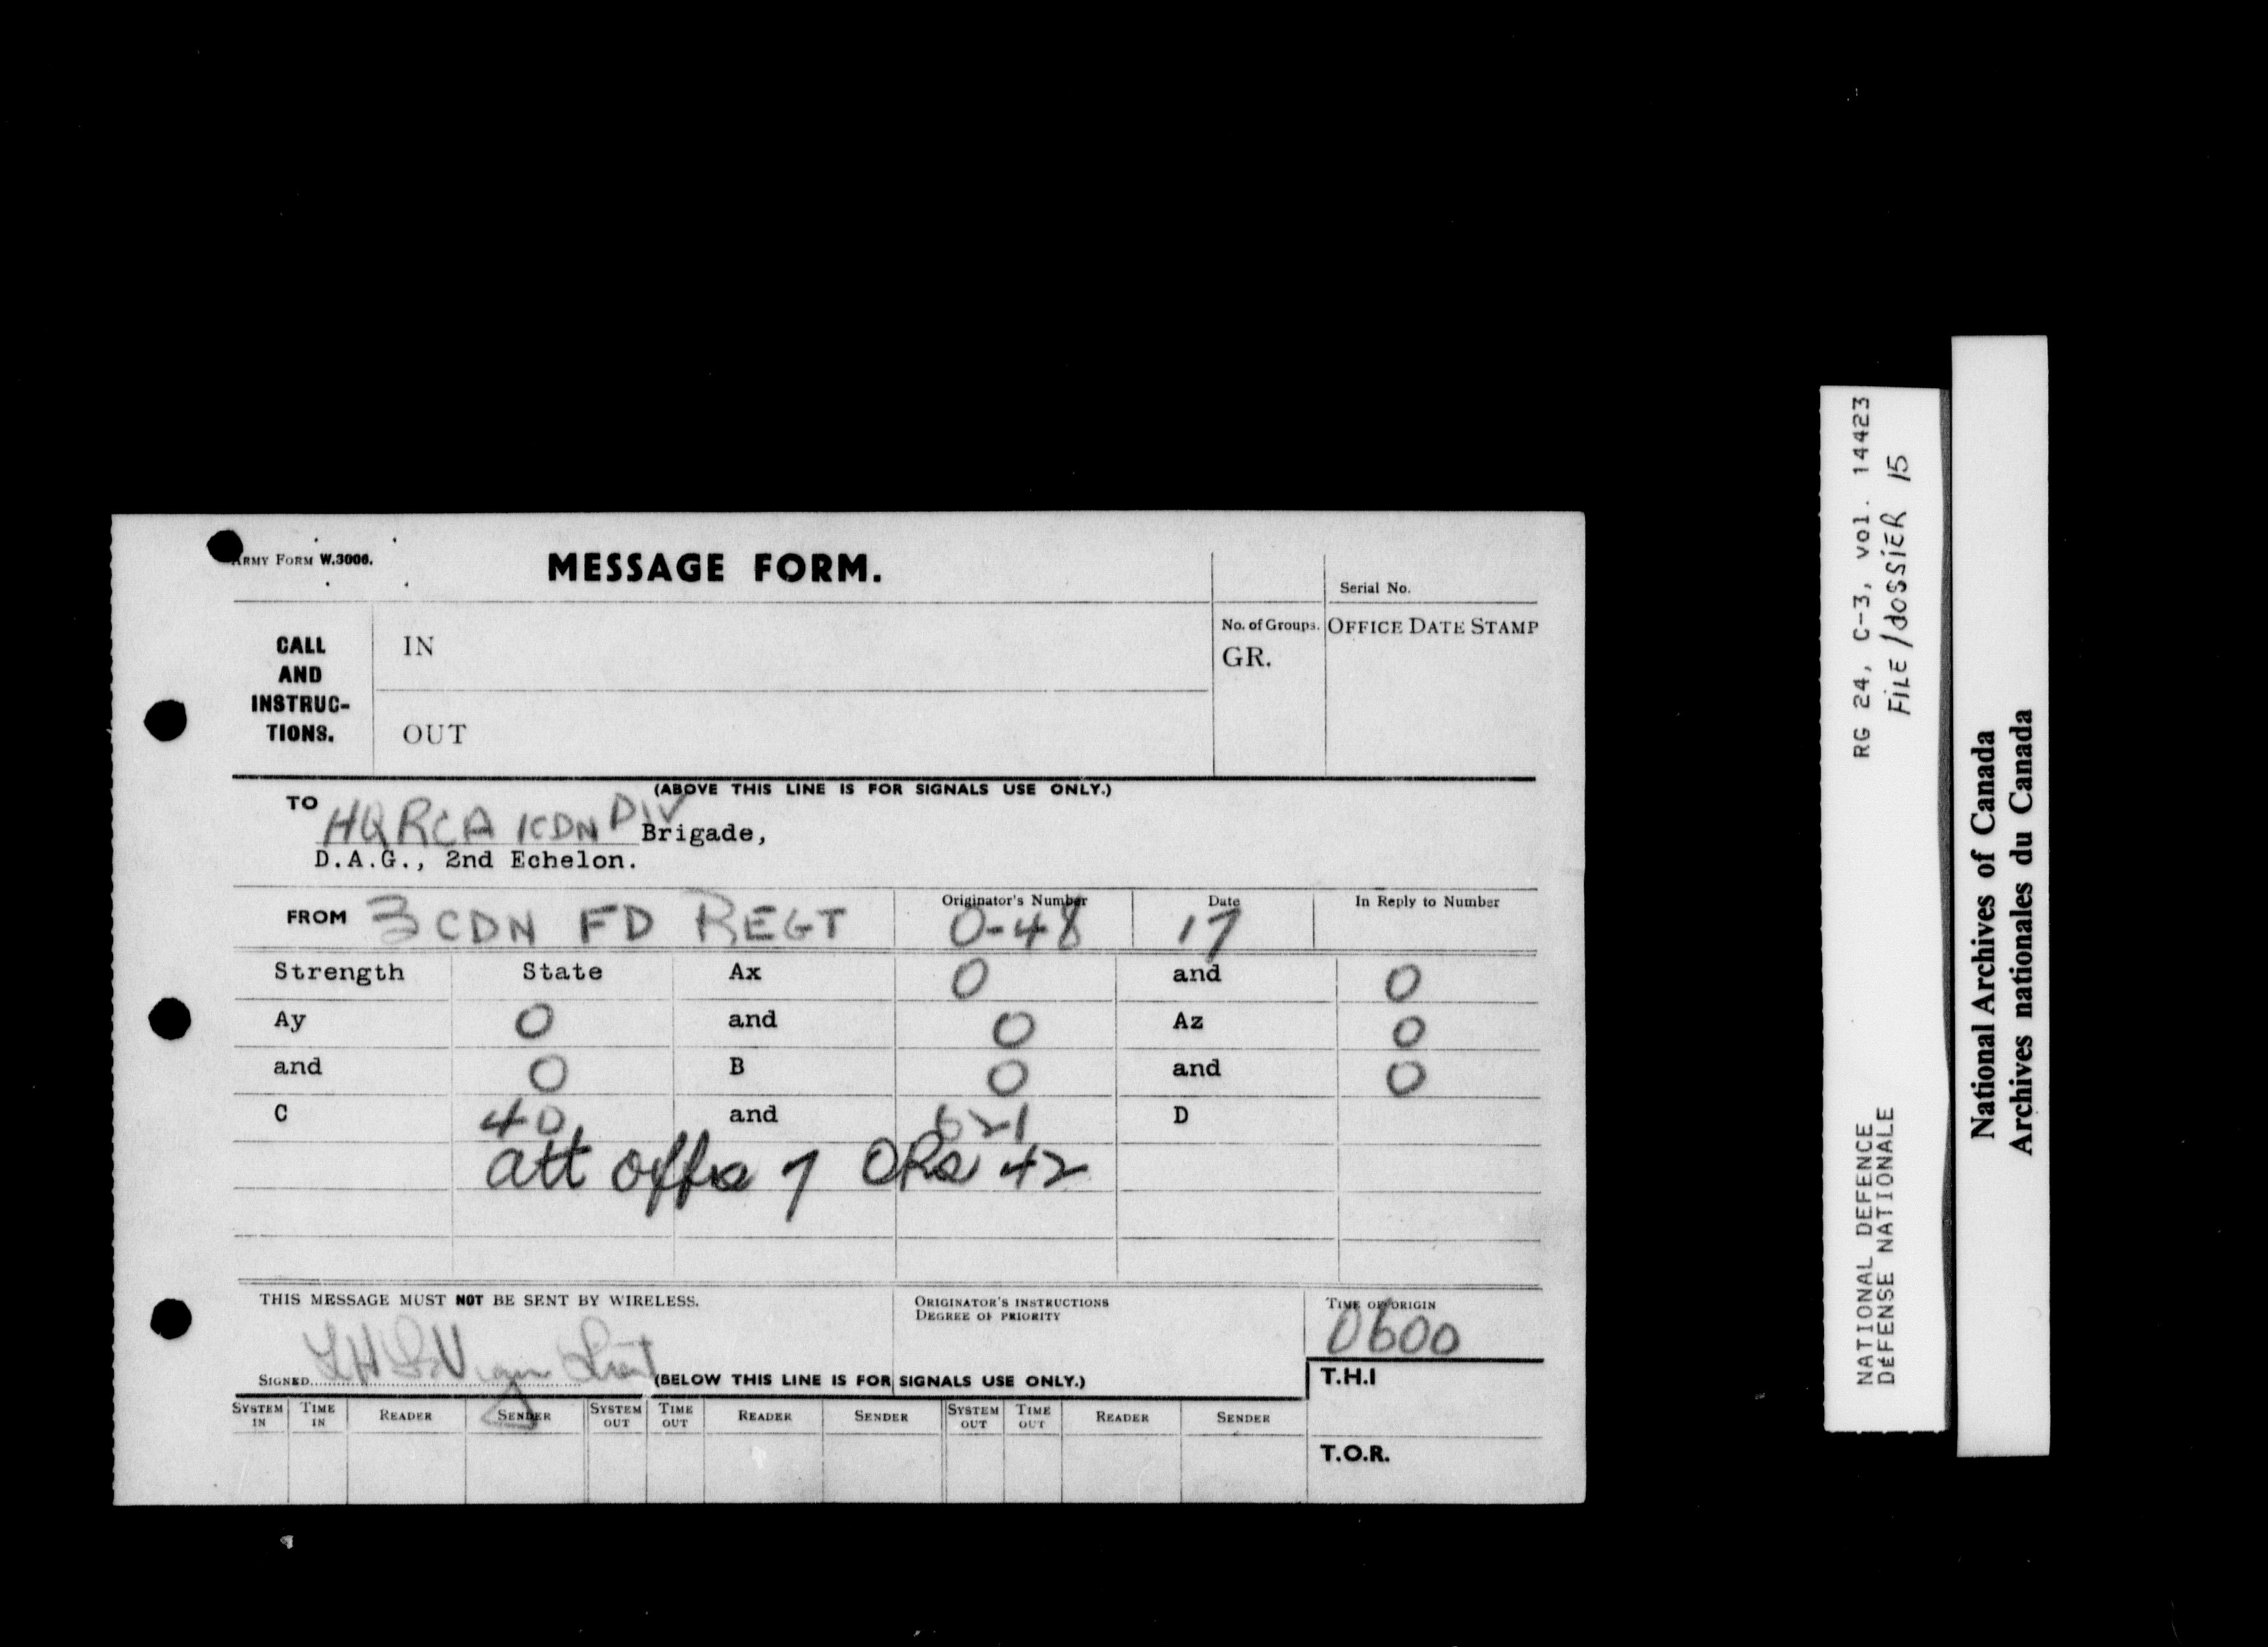 ARMY FORM W.3000.
MESSAGE FORM.
Serial No.
CALL AND INSTRUC-TIONS.
IN
No. of Groups.
GR.
OFFICE DATE STAMP
OUT
(ABOVE THIS LINE IS FOR SIGNALS USE ONLY.)
TO HQ RCA 1 CDN DIV Brigade,
D.A.G., 2nd Echelon.
FROM 3 CDN FD REGT Originator's Number O-48 Date 17 In Reply to Number
Strength State Ax 0 and 0
Ay 0 and 0 Az 0
and 0 B 0 and 0
C 40 and 621 D
att offrs 7 ORs 42
THIS MESSAGE MUST NOT BE SENT BY WIRELESS.
ORIGINATOR'S INSTRUCTIONS
DEGREE OF PRIORITY
TIME OF ORIGIN
0600
SIGNED Lieut
(BELOW THIS LINE IS FOR SIGNALS USE ONLY.)
T.H.I
SYSTEM IN TIME IN READER SENDER SYSTEM OUT TIME OUT READER SENDER SYSTEM OUT TIME OUT READER SENDER
T.O.R.
RG 24, C-3, vol. 14423
FILE/dOSSiER 15
NATIONAL DEFENCE
DÉFENSE NATIONALE
National Archives of Canada
Archives nationales du Canada